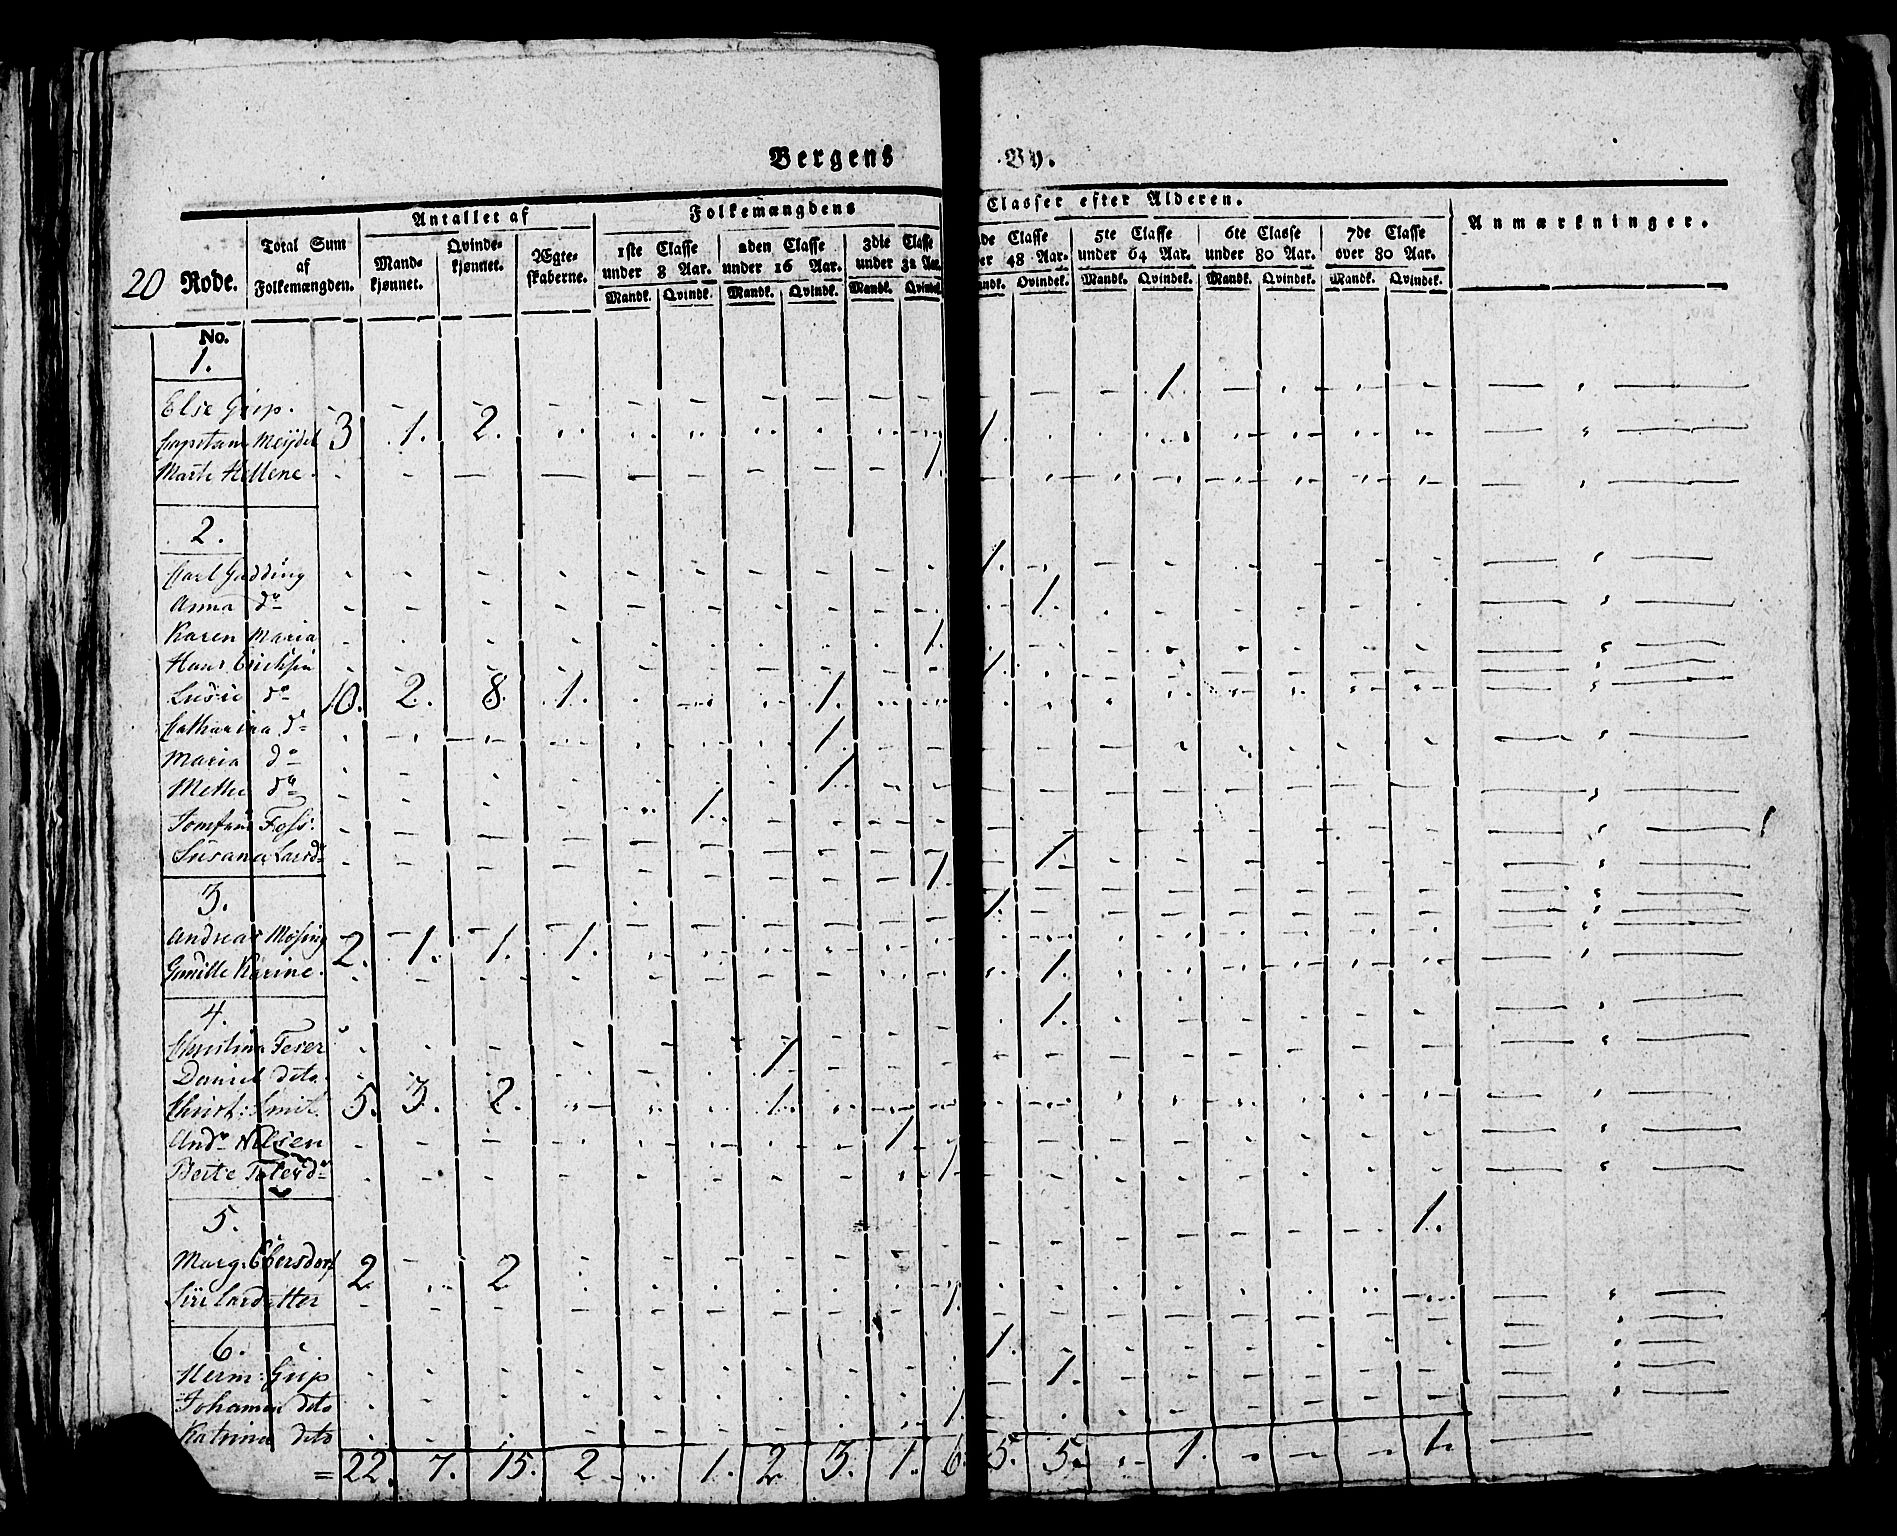 Bergens By.
Antallet af Folkemængdens Classer efter Alderen. Anmærkninger.
20 Rode. Total Sum af Folkemængden. Mandkjønnet. Qvindekjønnet. Ægteskaberne. 1ste Classe under 8 Aar. 2den Classe under 16 Aar. 3die Classe under 32 Aar. de Classe er 48 Aar. 5te Classe under 64 Aar. 6te Classe under 80 Aar. 7de Classe over 80 Aar.
Mandk. Qvindk. Mandk. Qvindk. Mandk. Qvindek. andk. Qvindek. Mandk. Qvindek. Mandk. Qvindek. Mandk. Qvindek.
No.
1.
Else Grip. 1.
Capitain Meydel 3 1. 2. 1.
Marte Hellene. 1.
2.
Carl Gudding 1.
Anna do 1.
Karen Maria 1.
Hans Erichsen 1.
Lusie do 10. 2. 8. 1. 1.
Catharina do 1.
Maria do 1.
Methe do 1.
Jomfrue Foss. 1
Susana Larsdr 1.
3.
Andreas 2. 1. 1. 1. 1.
Karine. 1.
4.
Christina Feser 1.
Daniel dito. 1
Christ: Smit. 5. 3. 2. 1.
Andr Nilsen 1
Berte 1
5.
Marg. Ebersdorf 2 2 1.
Siri Larsdatter 1.
6.
Herm: Grip 1.
Johanna dito 1.
Katrina dito 1.
= 22. 7. 15. 2 1. 2 3. 1. 6. 5. 5. 1. 1.